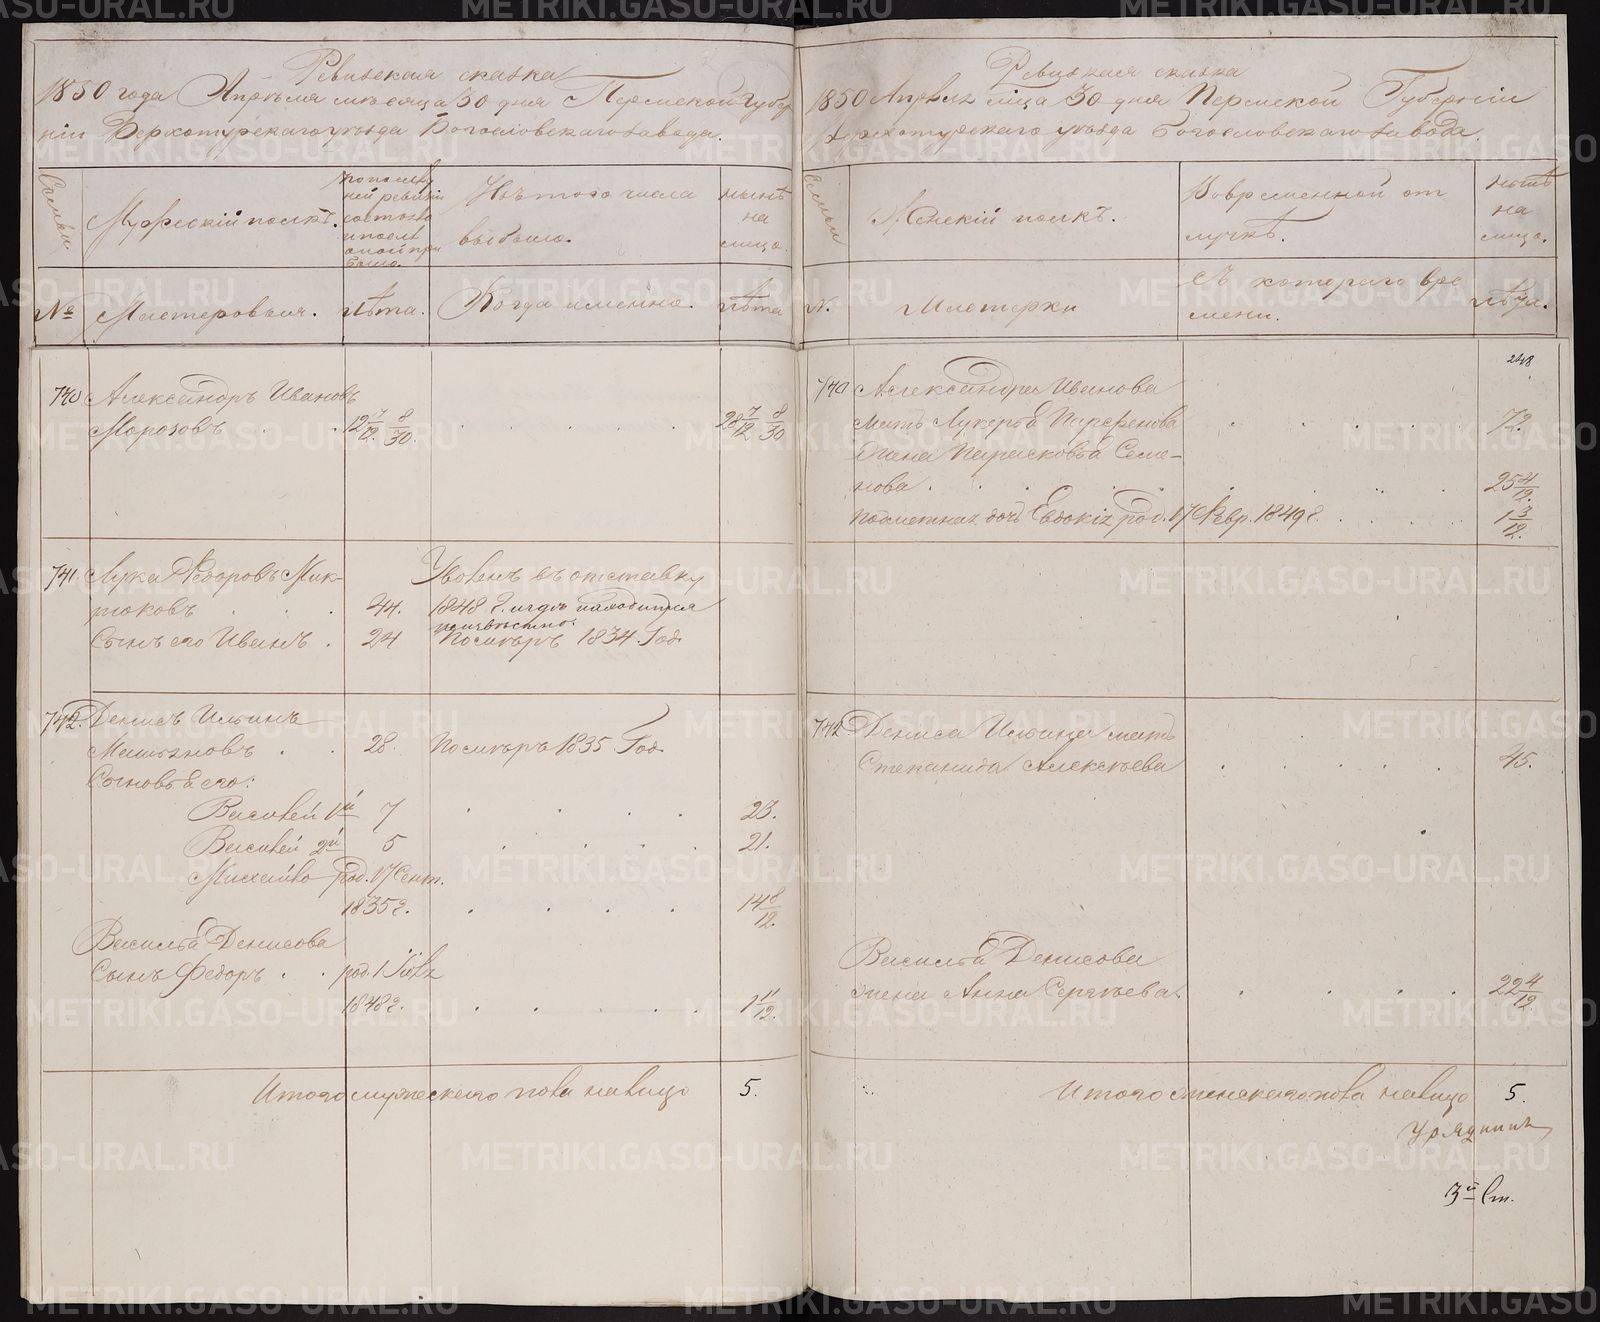 Ревизская сказка
1850 года Апреля месяца 30 дня Пермской Губер
ніи Верхотурскаго уезда Богословскаго завода.
Семьи
Мужескій полкъ.
по послед
ней ревизіи
состояло
и после
оной при
было.
Изъ того числа
выбыло.
ныне
на
лицо.
№
Мастеровыя.
Лета.
Когда именно.
Лета
740 Александръ Ивановъ
Морозовъ . . 12 7/12 8/30. . . . . . 28 7/12 8/30
741. Лука Федоровъ Мик-
Уволенъ въ отставку
тюковъ . . . 44. 1848 г. и где находится
неизвестно.
Сынъ его Иванъ . 24 Посмеръ 1834. Год
742. Денисъ Ильинъ
. . 28. 1835 Год
Сыновья его:
Василей 1й 7 . . . . 23.
Василей 2й 5 . . . . 21.
Михайло род. 17 Сент.
1835 г. . . . . 14 8/12.
Василья Денисова
Сынъ Федоръ . . род. 1 Іюля
1848 г. . . . . . 1 11/12.
Итого мужескаго пола налицо 5.
Ревизская сказка
1850 Апреля м-ца 30 дня Пермской Губерніи
Верхотурскаго уезда Богословскаго завода
Семьи
Женскій полкъ.
Во временной от
лучке.
ныне
на
лицо.
№.
Мастерки
Съ котораго вре
мени.
Лета.
248
740 Александра Иванова
мать Лукерья Парфенова . . . . . 72.
жена Парасковья Семе-
нова . . . . . . . . 25 4/12.
дочь Евдокія род. 17 Февр. 1849 г. . . . . 1 3/12.
742 Дениса Ильина мать
Степанида Алексеева . . . . . 45.
Василья Денисова
жена Анна Сергеева. . . . . 22 4/12.
Итого женскаго пола налицо 5.
Урядникъ
3й Ст.
METRIKI.GASO-URAL.RU